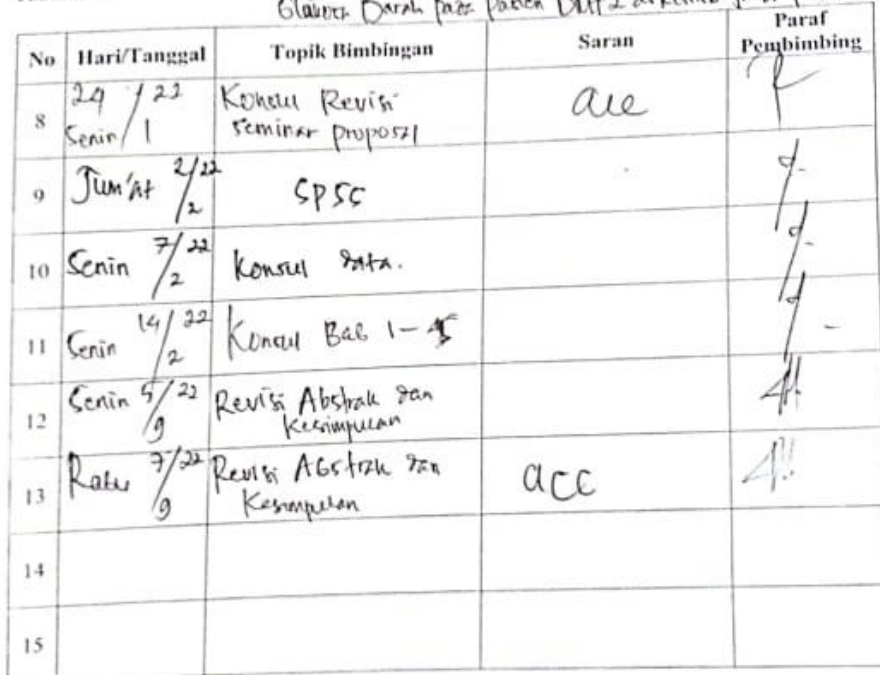 Darah pada pasien DM
No Hari/Tanggal Topik Bimbingan Saran Paraf Pembimbing
8 Senin 24/1 22 Konsul Revisi seminar proposal acc
9 Jum'at 2/2 22 SPSS
10 Senin 7/2 22 Konsul data.
11 Senin 14/2 22 Konsul Bab 1 -
12 Senin 5/9 22 Revisi Abstrak dan Kesimpulan
13 Rabu 7/9 22 Revisi Abstrak dan Kesimpulan acc
14
15